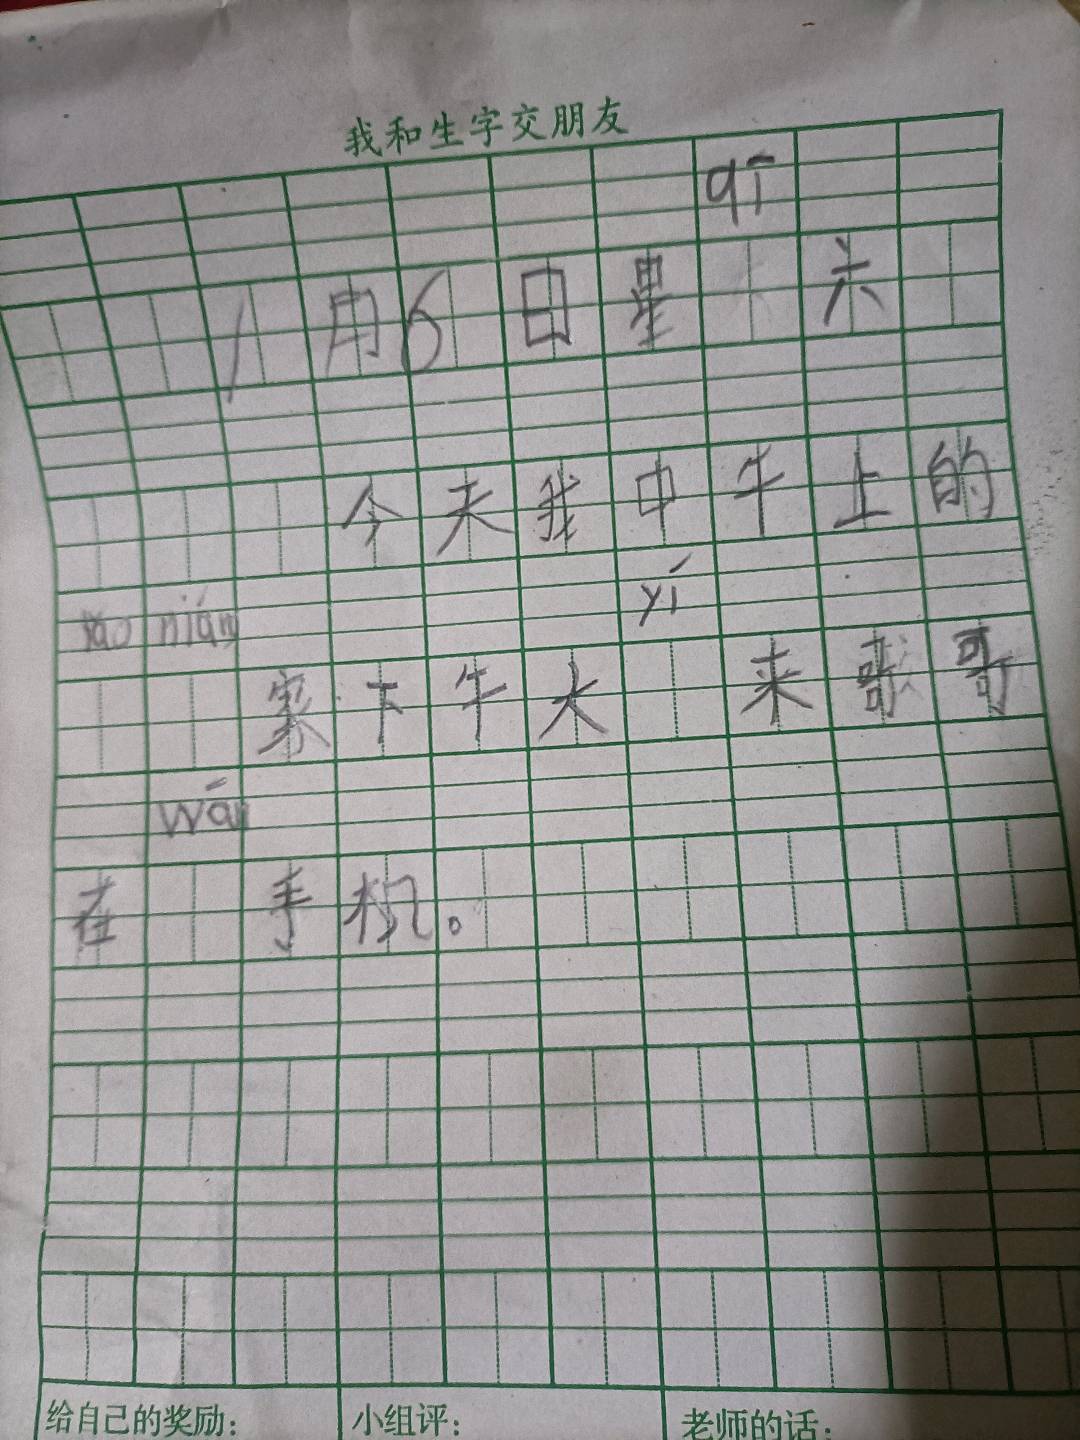 我和生字交朋友
qī
1月6日星 六
今天我中午上的
xiě nián yí
家下午大 来歌哥
wán
在 手机。
给自己的奖励： 小组评： 老师的话：